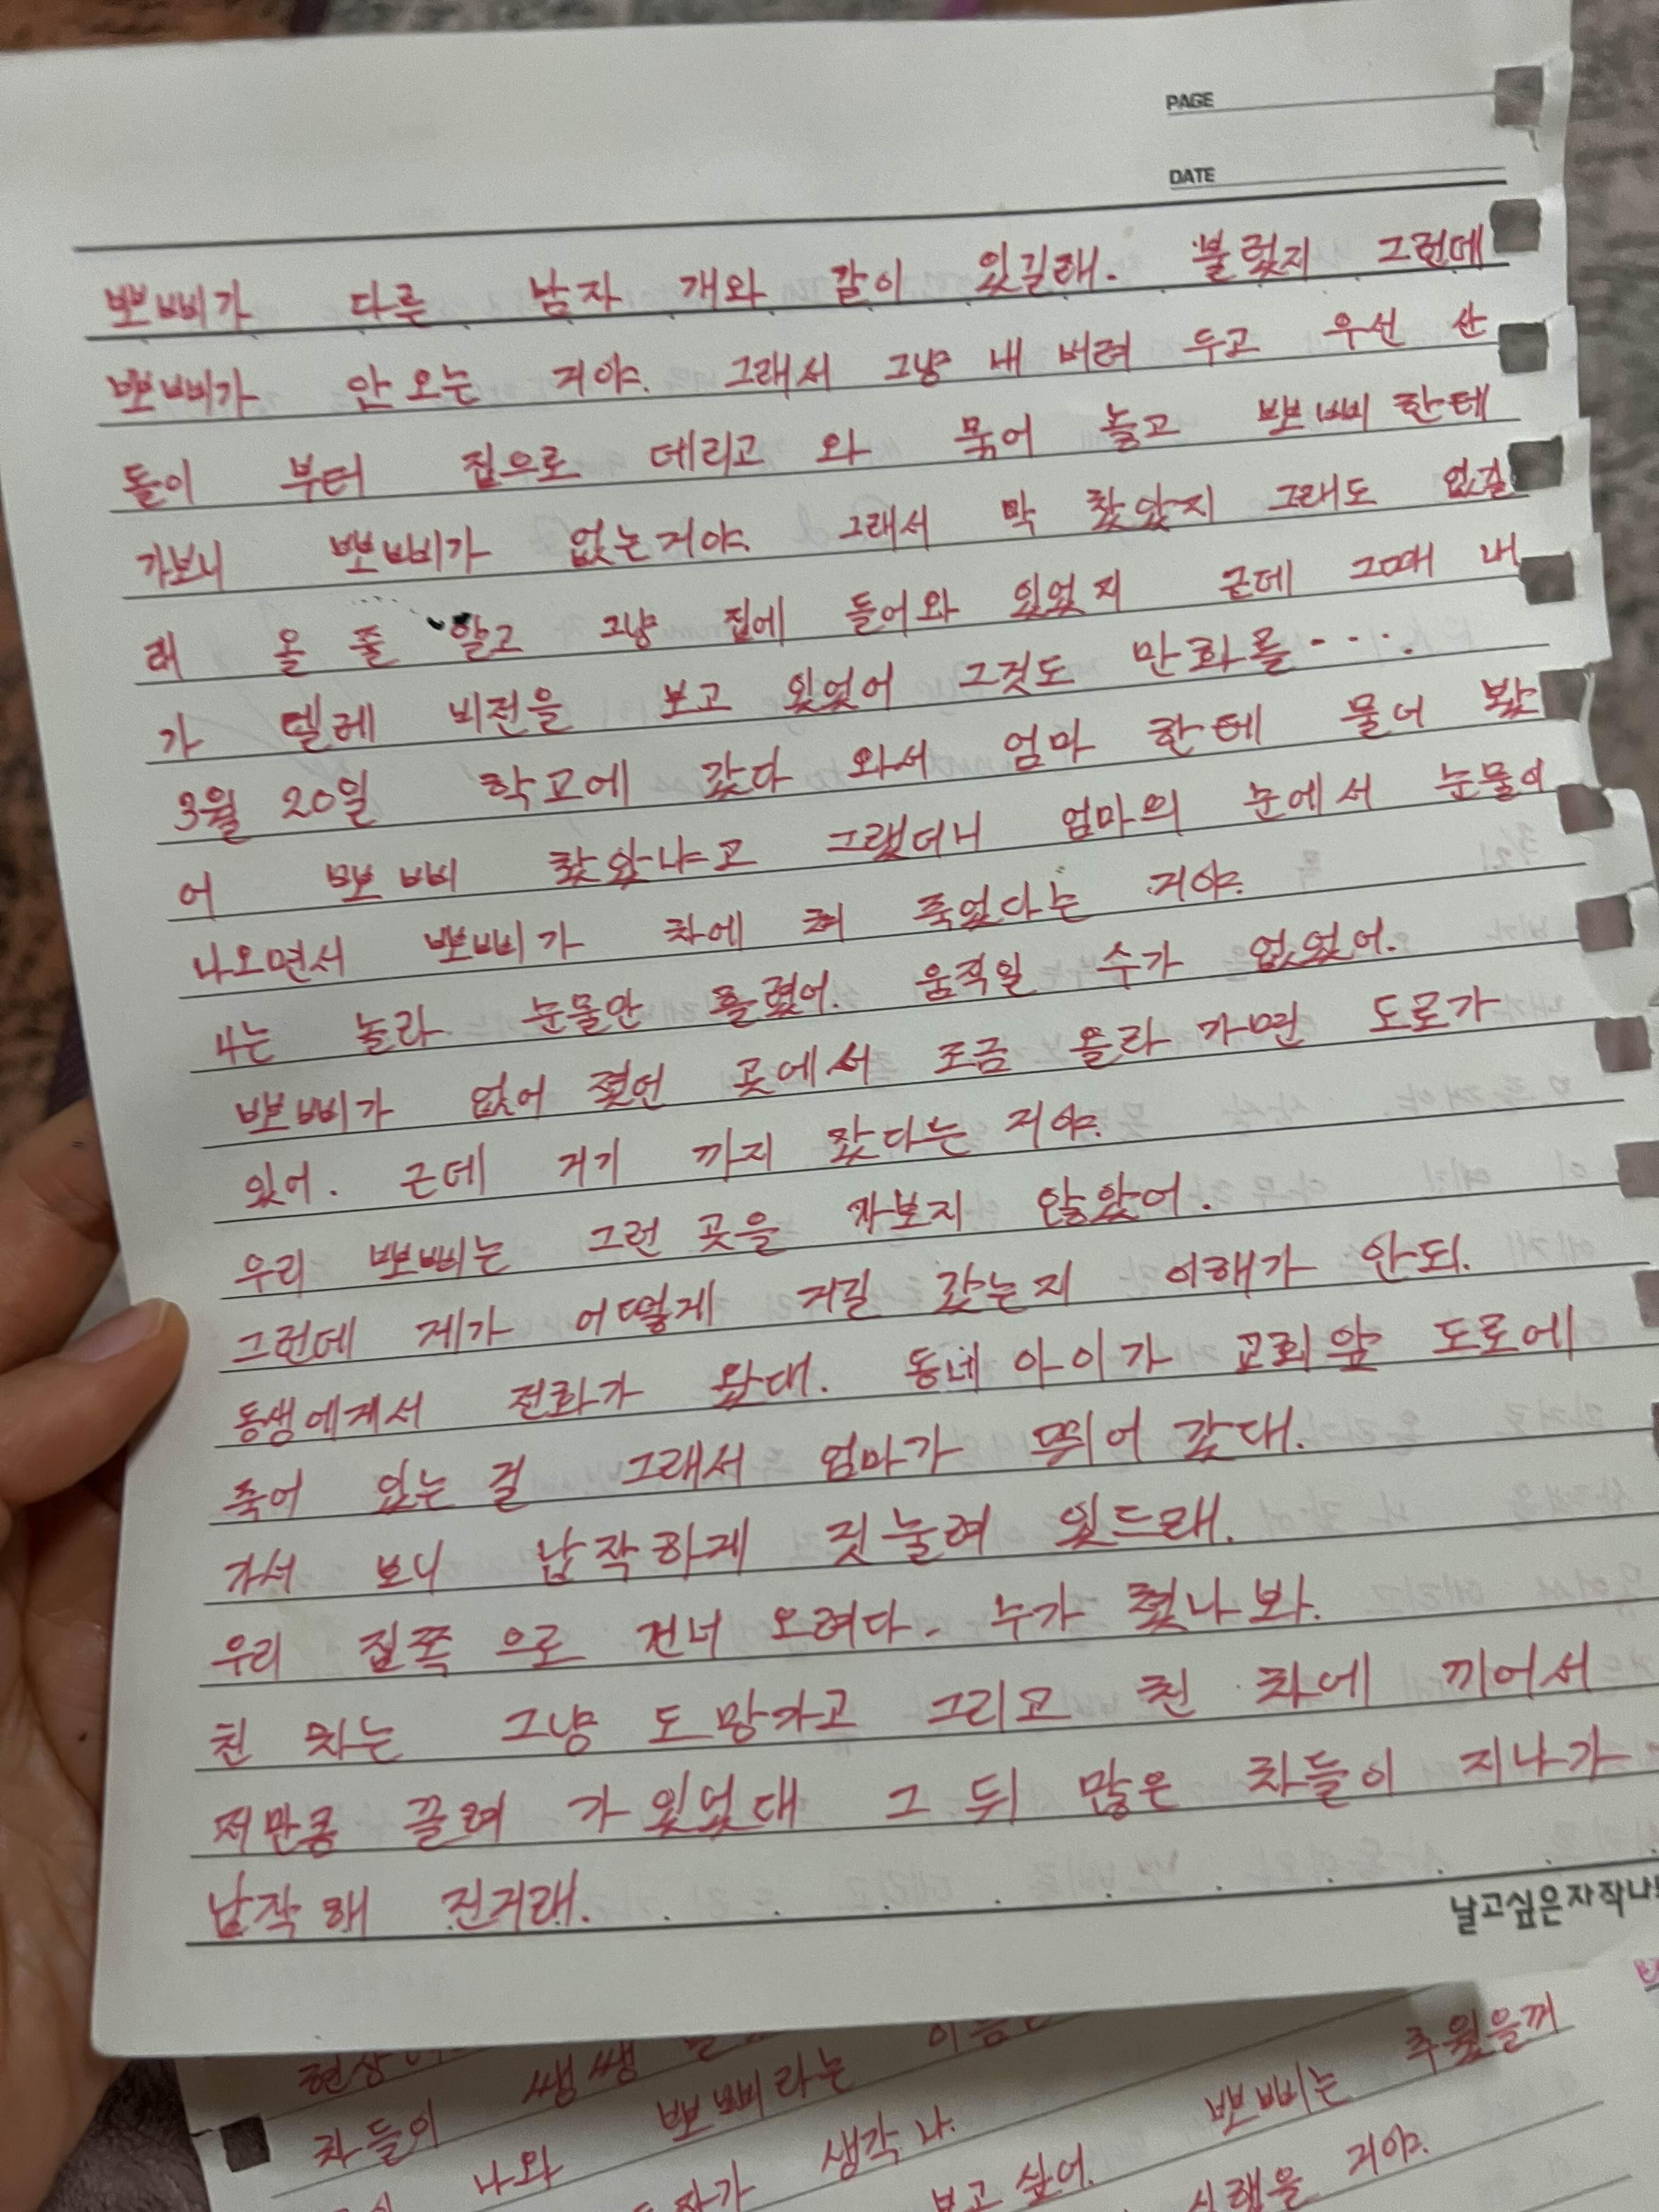 PAGE
DATE
뽀삐가 다른 남자 개와 같이 있길래. 불렀지 그런데
뽀삐가 안오는 거야. 그래서 그냥 내 버려 두고 우선 산
돌이 부터 집으로 데리고 와 묶어 놓고 뽀삐한테
가보니 뽀삐가 없는거야. 그래서 막 찾았지 그래도 없길
래 올 줄 알고 그냥 집에 들어와 있었지 근데 그때 내
가 텔레 비전을 보고 있었어 그것도 만화를····
3월 20일 학교에 갔다 와서 엄마 한테 물어 봤
어 뽀삐 찾았냐고 그랬더니 엄마의 눈에서 눈물이
나오면서 뽀삐가 차에 쳐 죽었다는 거야.
나는 놀라 눈물만 흘렸어. 움직일 수가 없었어.
뽀삐가 없어 졌던 곳에서 조금 올라 가면 도로가
있어. 근데 거기 까지 갔다는 거야.
우리 뽀삐는 그런 곳을 가보지 않았어.
그런데 제가 어떻게 거길 갔는지 이해가 안되.
동생에게서 전화가 왔대. 동네 아이가 교회앞 도로에
죽어 있는 걸 그래서 엄마가 뛰어 갔대.
가서 보니 납작하게 짓눌려 있드래.
우리 집쪽 으로 건너 오려다. 누가 쳤나 봐.
친 차는 그냥 도망가고 그리고 친 차에 끼어서
저만큼 끌려 가 있었대 그 뒤 많은 차들이 지나가
납작 해 진거래.
날고싶은자작나
현상
차들이 쌩쌩
나와 뽀삐라는
생각 나. 뽀삐는 추웠을꺼
보고 싶어.
거야.